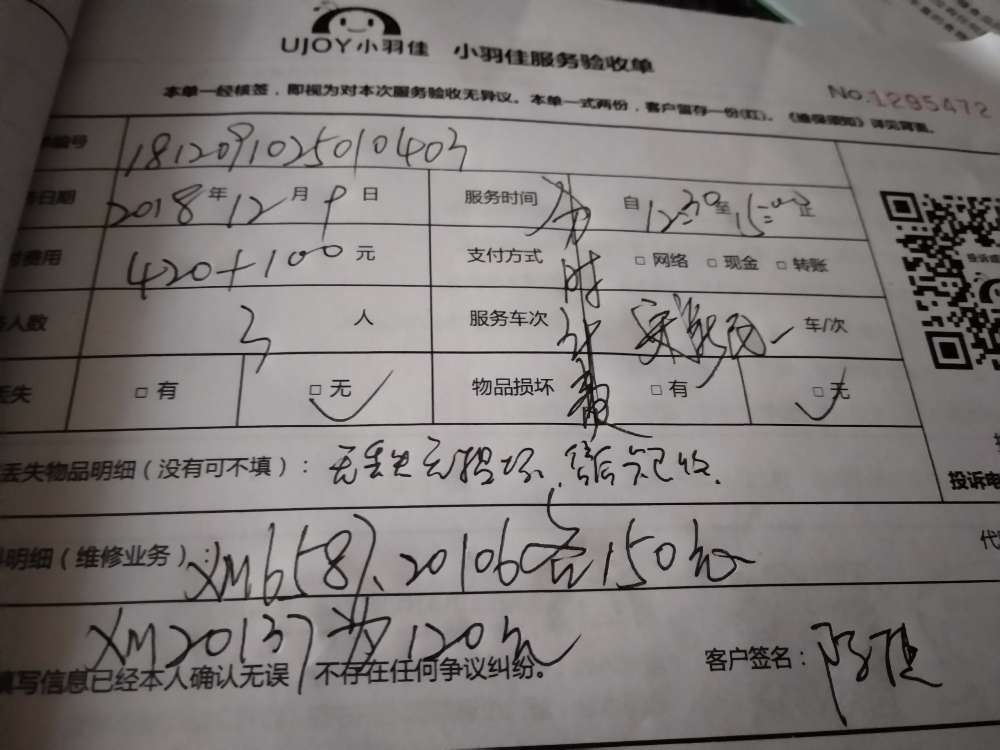 UJOY小羽佳 小羽佳服务验收单
本单一经核签，即视为对本次服务验收无异议。本单一式两份，客户留存一份(红)。《维保须知》详见背面。
No.1295472
编号 181209102501040
日期 2018年12月9日 服务时间 自12:30至15:00止
费用 420+100元 支付方式 □网络 □现金 □转账
人数 3人 服务车次 车/次
丢失 □有 □无 物品损坏 □有 □无
丢失物品明细（没有可不填）：无丢失无损坏
明细（维修业务）：XM658、2010 150元
XM20137 120元
填写信息已经本人确认无误，不存在任何争议纠纷。
客户签名：
投诉电